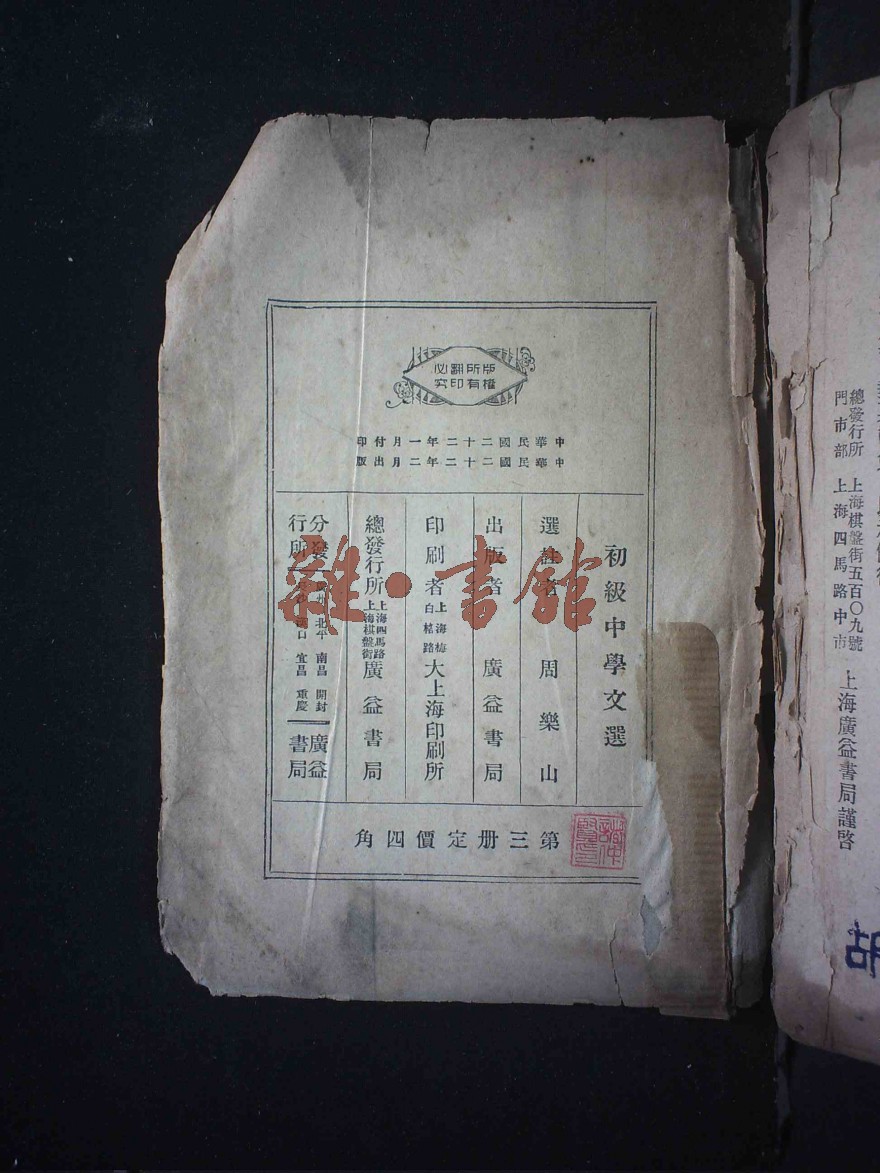 版權所有翻印必究
中華民國二十二年一月付印
中華民國二十二年二月出版
初級中學文選
選註者 周樂山
出版者 廣益書局
印刷者 上海梅白格路 大上海印刷所
總發行所 上海四馬路 上海棋盤街 廣益書局
分發行所 北平 南昌 開封 宜昌 重慶 廣益書局
第三册定價四角
雜·書館
總發行所 上海棋盤街五百〇九號
門市部 上海四馬路中市
上海廣益書局謹啓